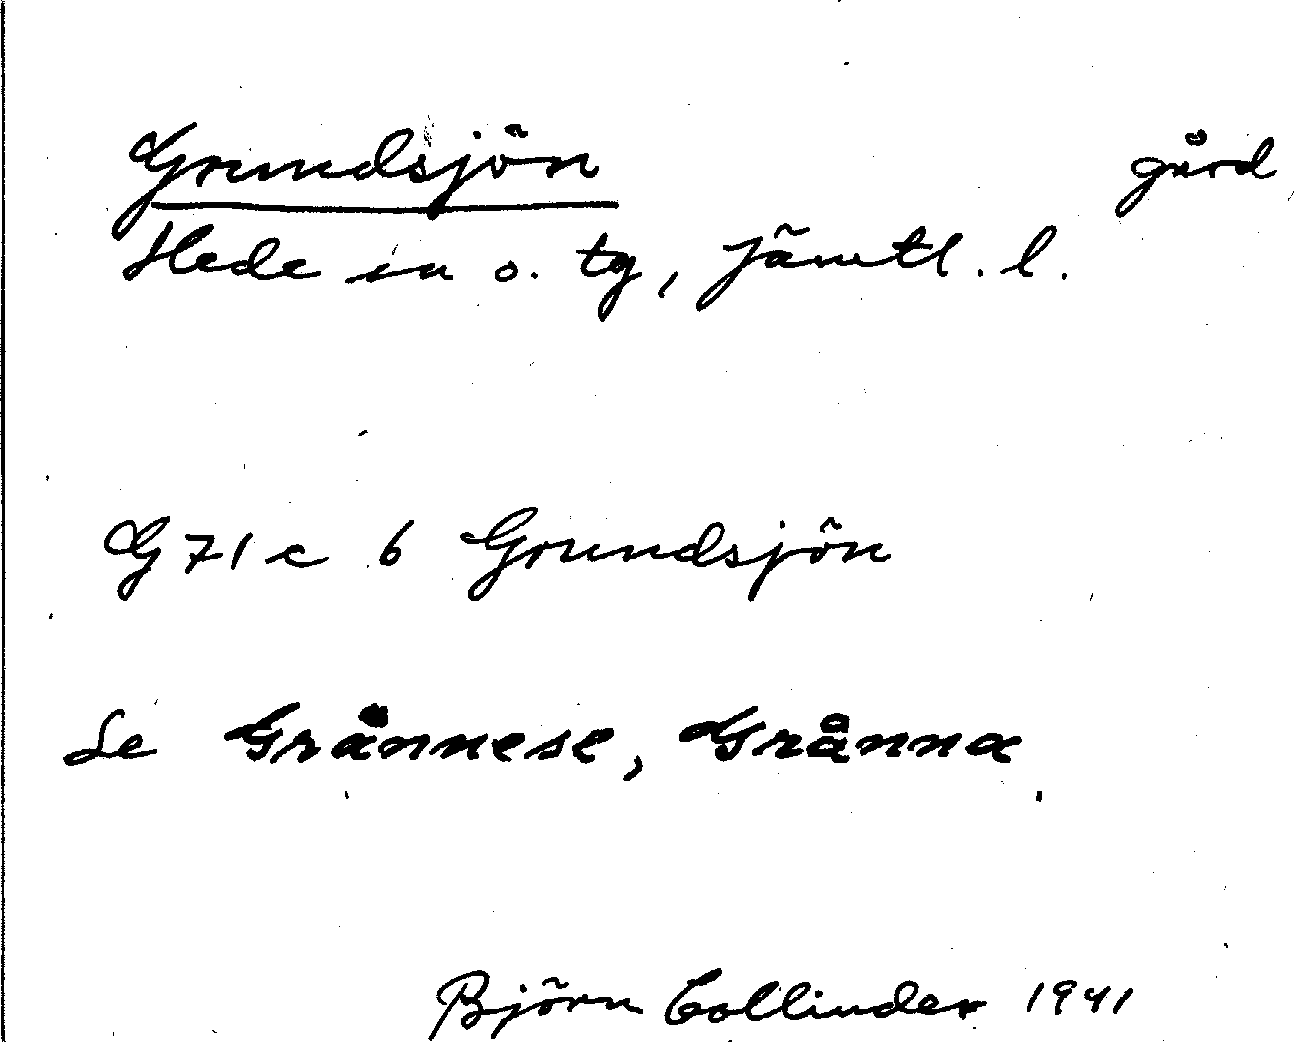 Grundsjön gård
Hede sn o. tg, Jämtl. l.
G 71 c 6 Grundsjön
Se Grånnese, Grånna
Björn Collinder 1941